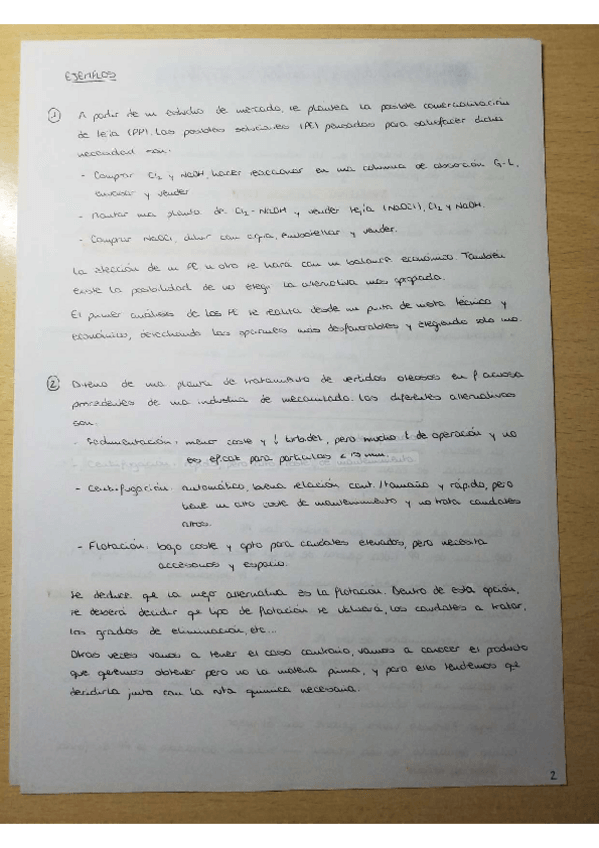 EJEMPLOS
① A partir de un estudio de mercado, se plantea la posible comercialización
de lejía (PP). Las posibles soluciones (PE) pensadas para satisfacer dicha
necesidad son:
- Comprar Cl₂ y NaOH, hacer reaccionar en una columna de absorción G-L,
envasar y vender.
- Montar una planta de Cl₂-NaOH y vender lejía (NaOCl), Cl₂ y NaOH.
- Comprar NaOCl, diluir con agua, embotellar y vender.
La elección de un PE u otro se hará con un balance económico. También
existe la posibilidad de no elegir la alternativa más apropiada.
El primer análisis de los PE se realiza desde un punto de vista técnico y
económico, desechando las opciones más desfavorables y eligiendo solo uno.
② Diseño de una planta de tratamiento de vertidos oleosos en f acuosa
procedentes de una industria de mecanizado. Las diferentes alternativas
son:
- Sedimentación: menor coste y ↓ turbidez, pero mucho t de operación y no
es eficaz para partículas <
- Centrifugación: automático, buena relación cant./tamaño y rápido, pero
tiene un alto coste de mantenimiento y no trata caudales
altos.
- Flotación: bajo coste y apto para caudales elevados, pero necesita
accesorios y espacio.
Se deduce que la mejor alternativa es la flotación. Dentro de esta opción,
se deberá decidir que tipo de flotación se utilizará, los caudales a tratar,
los grados de eliminación, etc...
Otras veces vamos a tener el caso contrario, vamos a conocer el producto
que queremos obtener pero no la materia prima, y para ello tendremos que
decidirla junto con la ruta química necesaria.
2